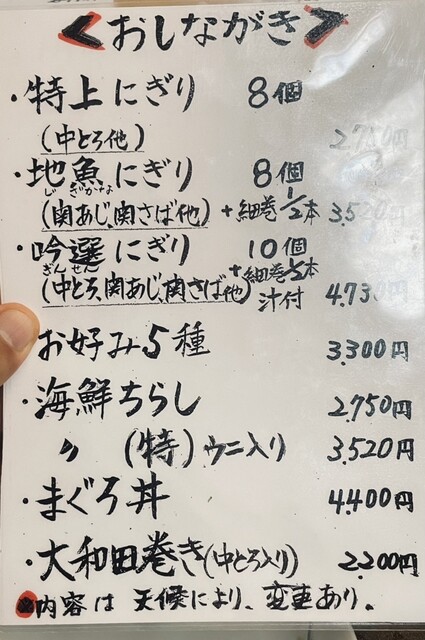 <おしながき>
・特上にぎり 8個
(中とろ他) 2,750円
・地魚にぎり 8個
じざかな
(関あじ、関さば他) +細巻1/2本 3,520円
・吟選にぎり 10個
ぎんせん +細巻1/2本
(中とろ、関あじ、関さば他) 汁付 4,730円
お好み5種 3,300円
・海鮮ちらし 2,750円
〃 (特)ウニ入り 3,520円
・まぐろ丼 4,400円
・大和田巻き(中とろ入り) 2,200円
●内容は天候により、変更あり。